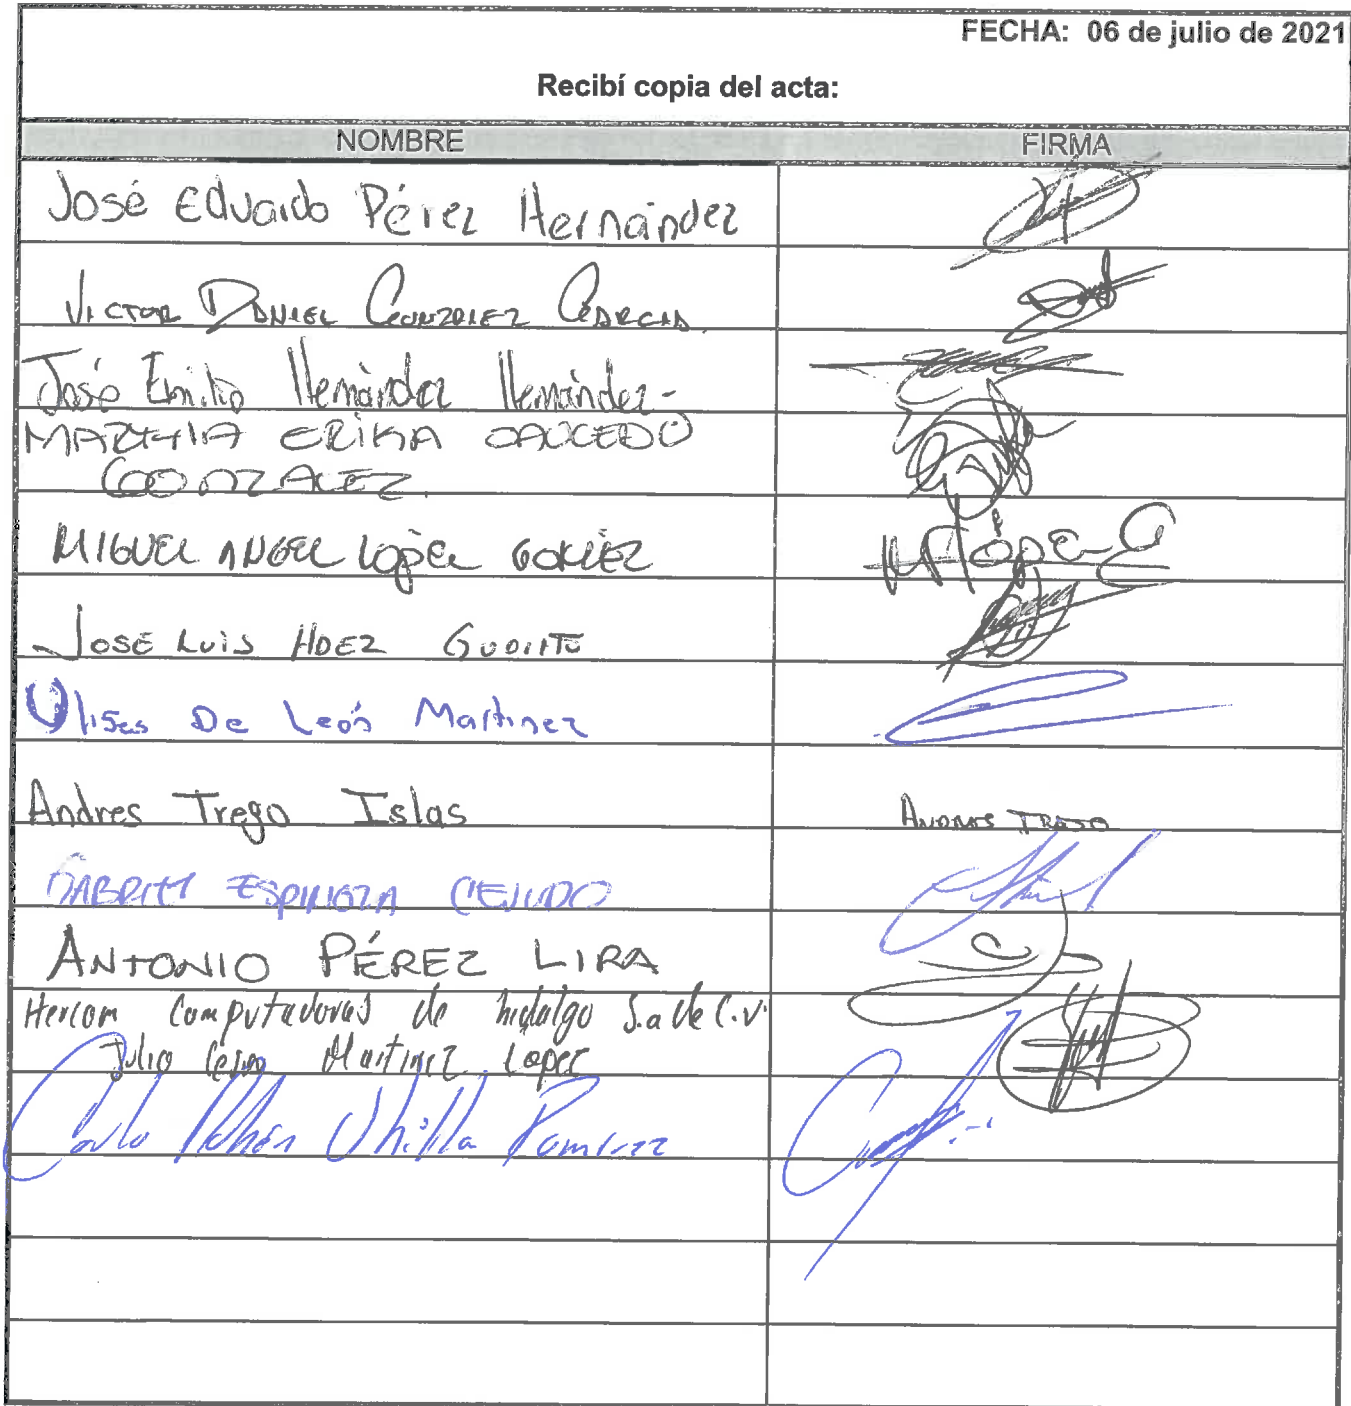 FECHA: 06 de julio de 2021
Recibí copia del acta:
NOMBRE FIRMA
José Eduardo Pérez Hernández
VICTOR DANIEL GONZALEZ GARCIA
José Emilio Hernández Hernández-
MARTHA ERIKA SAUCEDO
GONZALEZ
MIGUEL ANGEL LOPEZ GOMEZ MLópez G
JOSE LUIS HDEZ
Ulises De León Martinez
Andres Trejo Islas ANDRES TREJO
GABRIEL ESPINOZA CEJUDO
ANTONIO PÉREZ LIRA
Hercom Computadoras de hidalgo S.a de C.V.
Julio Cesar Martinez Lopez
Ramirez